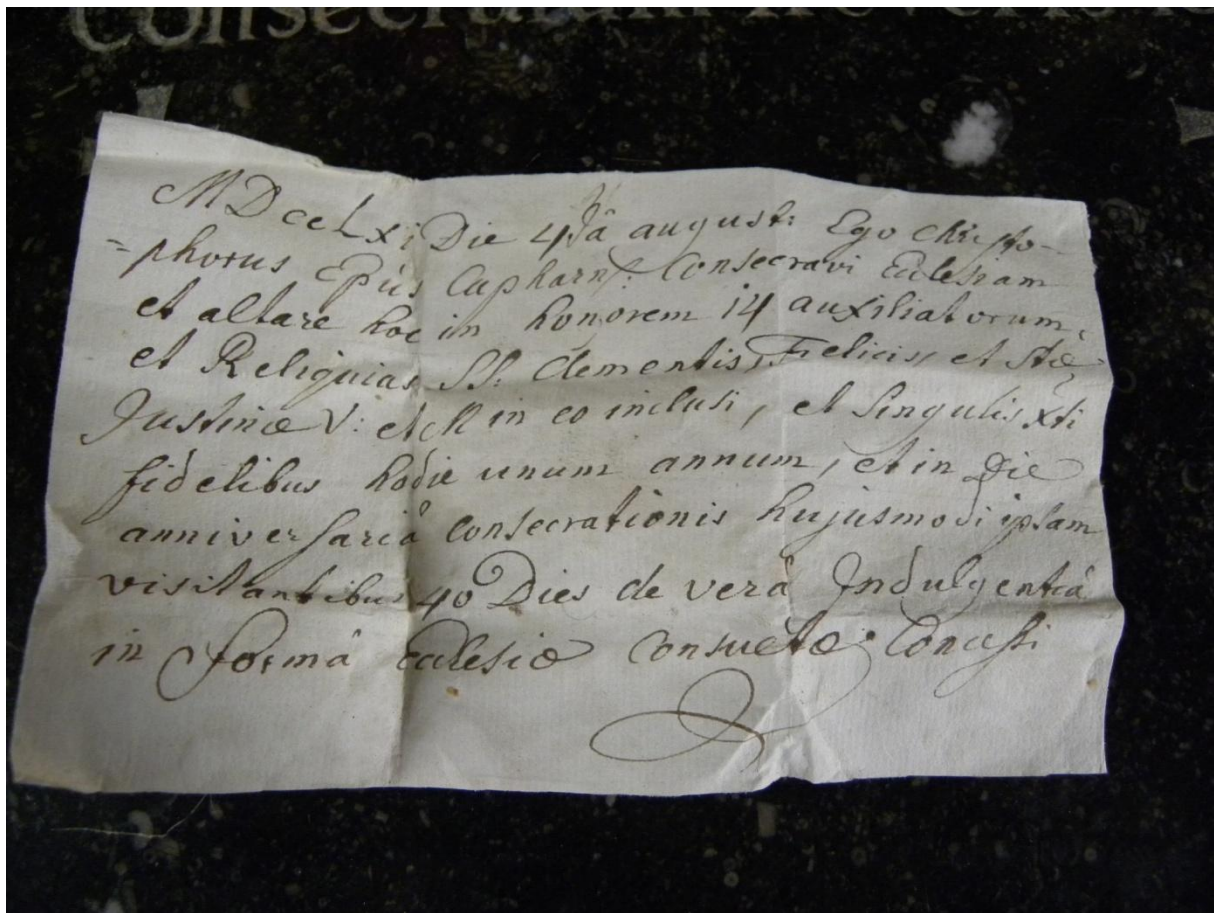 Consecratum Treveris
MDccLxi Die 4tâ august: Ego Christo-
=phorus Epus Capharn: Consecravi Eclesiam
et altare hoc in honorem 14 auxiliatorum,
et Reliquias SS: Clementis, Felicis, et Stæ
Justinæ V: et M in eo inclusi, et singulis Xti
fidelibus hodie unum annum, et in Die
anniversariâ Consecrationis hujusmodi ipsam
visitantibus 40 Dies de verâ Indulgentiâ
in formâ Eclesiæ Consuetæ Concessi